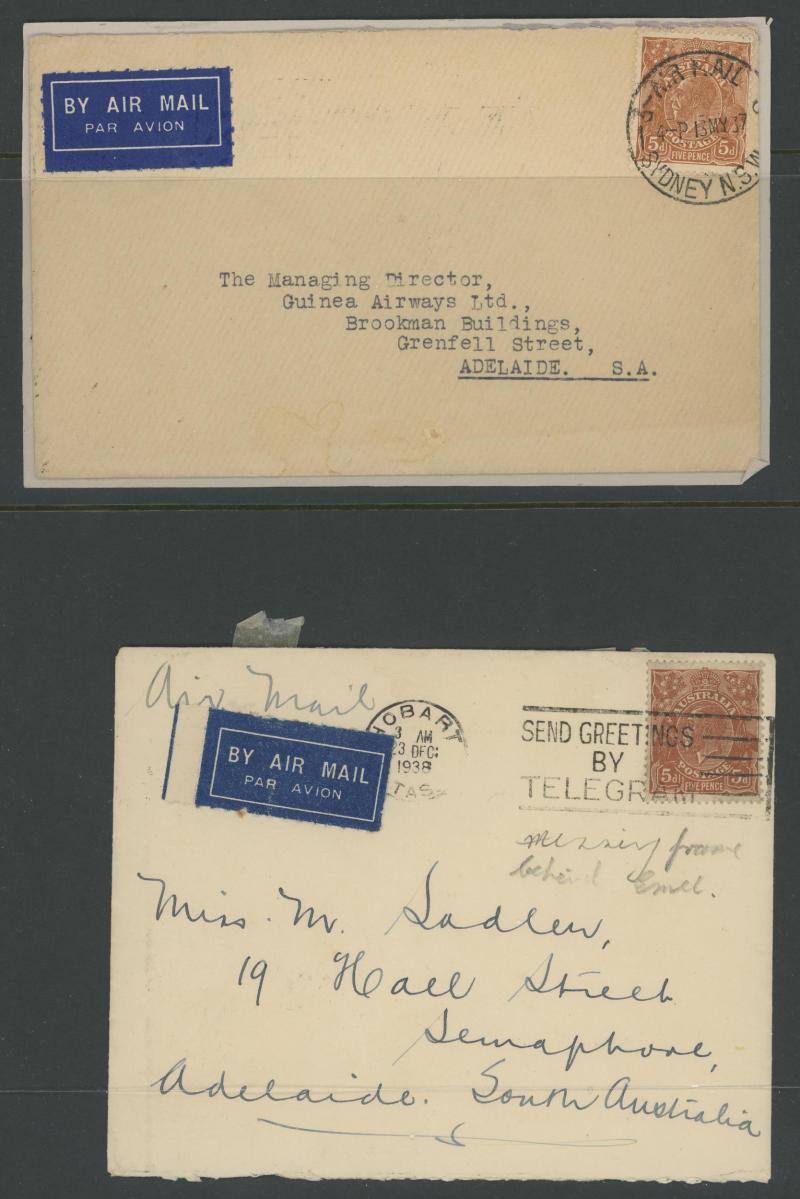 BY AIR MAIL
PAR AVION
AUSTRALIA
5d POSTAGE 5d
FIVE PENCE
AIR MAIL
4-P 13MY37
SYDNEY N.S.W
The Managing Director,
Guinea Airways Ltd.,
Brookman Buildings,
Grenfell Street,
ADELAIDE. S.A.
Air Mail
BY AIR MAIL
PAR AVION
HOBART
3 AM
23 DEC
1938
TAS
SEND GREETINGS
BY
TELEGRAM
AUSTRALIA
5d POSTAGE 5d
FIVE PENCE
frame
behind
Miss. M. Sadler,
19 Hall Street
Semaphore,
Adelaide. South Australia